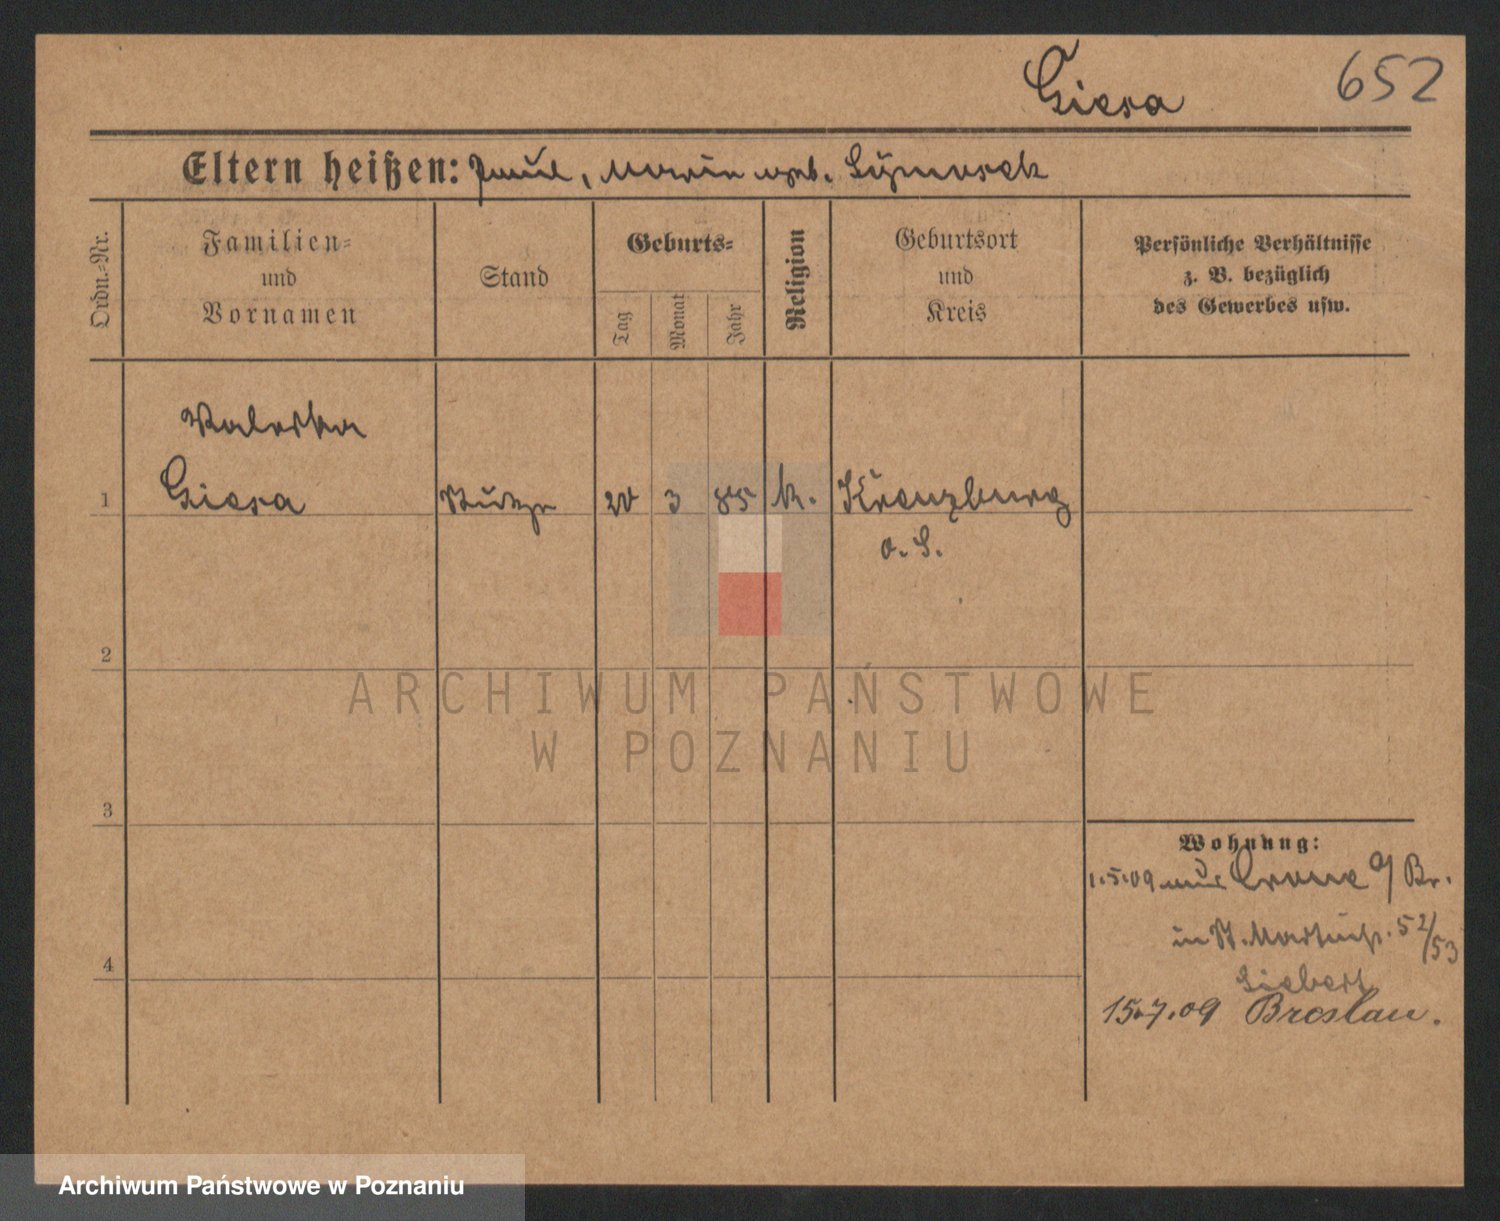 Giesa
652
Eltern heißen: Paul, Marie geb. Symosek
Ordn.=Nr.
Familien=
und
Vornamen
Stand
Geburts=
Tag
Monat
Jahr
Religion
Geburtsort
und
Kreis
Persönliche Verhältnisse
z. B. bezüglich
des Gewerbes usw.
Valeska
1 Giesa Stütze 20 3 85 k. Kreuzburg
O. S.
2
ARCHIWUM PAŃSTWOWE
W POZNANIU
3
Wohnung:
1.5.09 aus Crone a/ Br.
in St. Martinstr. 52/53
4
Siebert
15.7.09 Breslau.
Archiwum Państwowe w Poznaniu